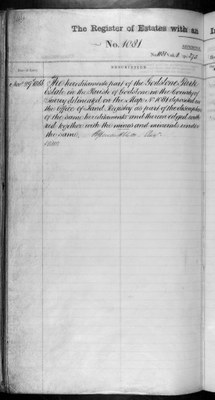 The Register of Estates with an
No. 1081
DESCRIPTION
The hereditaments part of the Godstone Park
Estate in the Parish of Godstone in the County of
Surrey delineated on the Map No. 1081 deposited in
the Office of Land Registry as part of the description
of the same hereditaments and thereon edged with
red together with the mines and minerals under
the same